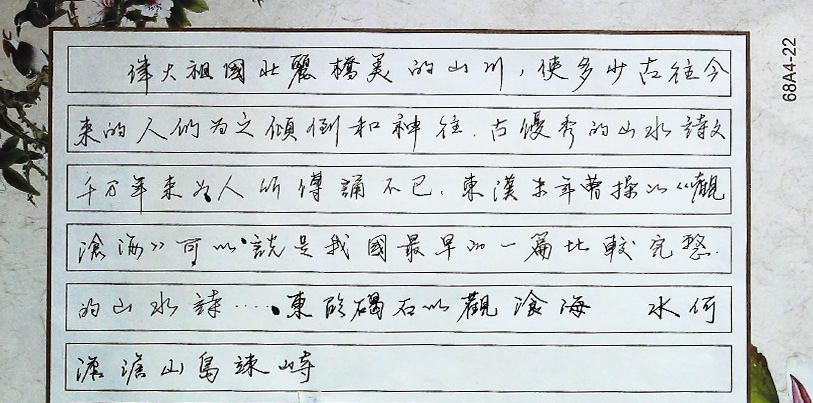 偉大祖國壯麗橋美的山川，使多少古往今
來的人們为之傾倒和神往.古優秀的山水詩文
千万年来为人所傳誦不已.東漢末年曹操的《觀
滄海》可以說是我國最早的一篇比較完整.
的山水詩……東臨碣石以觀滄海 水何
澹澹山島竦峙
68A4-22